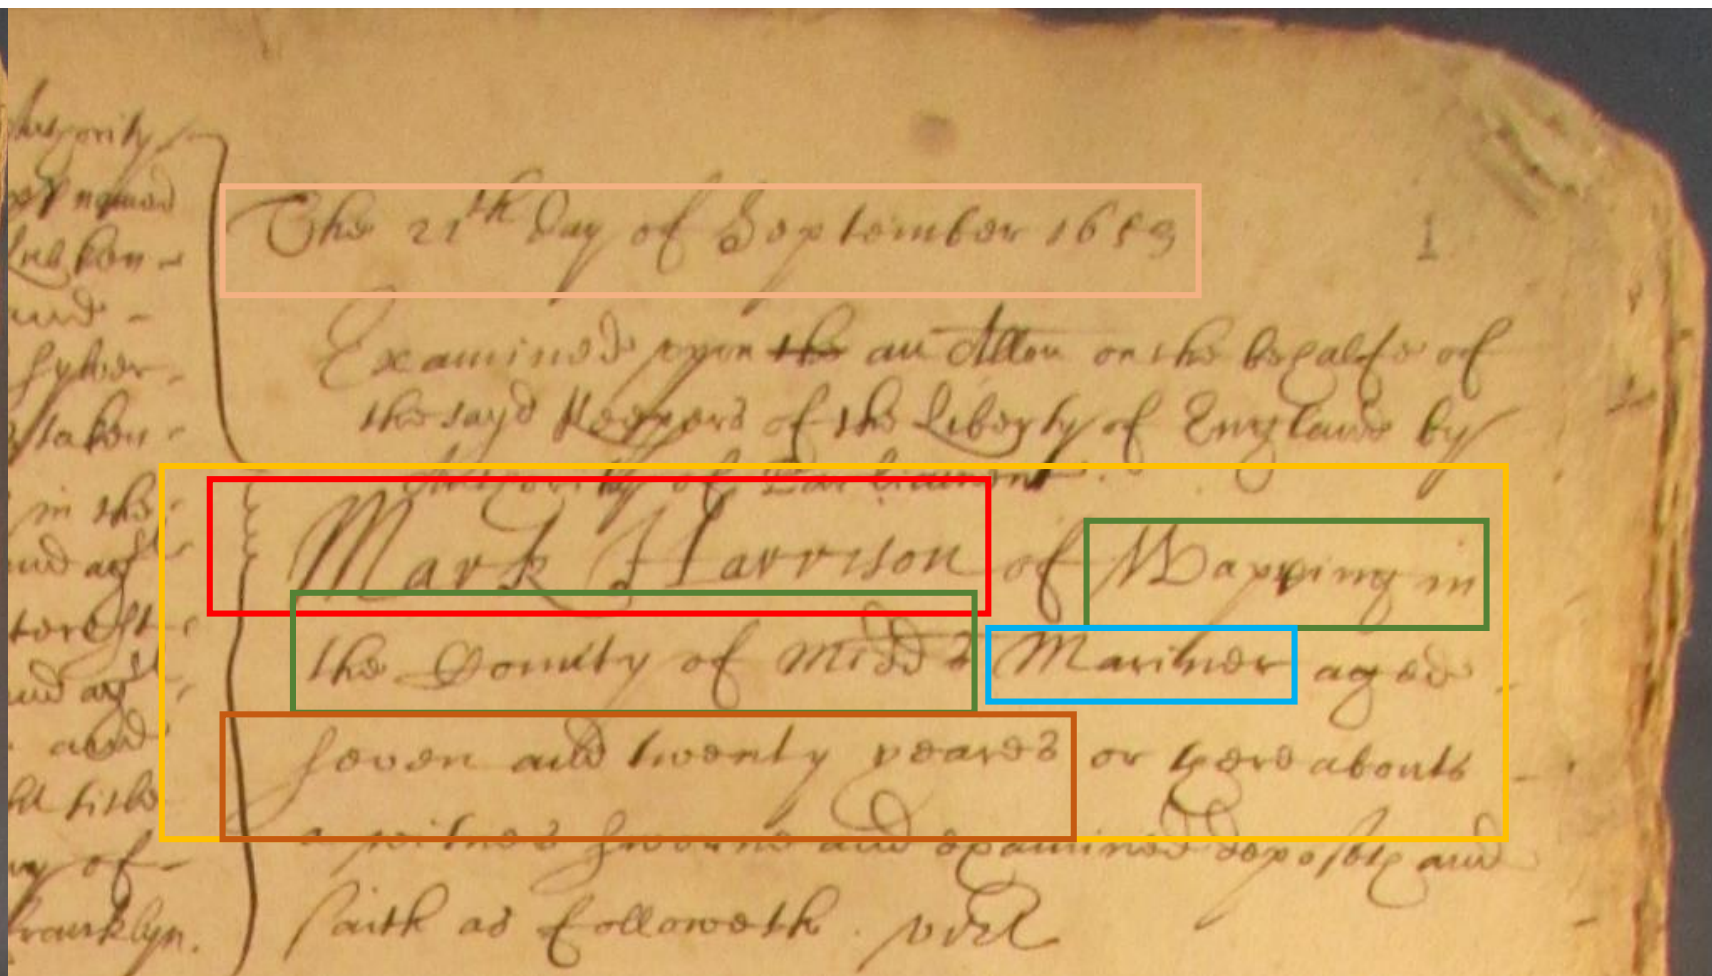 thority
named
and
sylver
taken
in the
and agt
and agt
and
title
of
francklyn.
The 21th day of September 1653
1
Examined upon the an Allon on the behalfe of
the sayd Keepers of the Liberty of England by
Authority of Parliament.
Mark Harrison of Wapping in
the County of Midds Mariner aged
seven and twenty yeares or thereabouts
a witnes sworne and examined deposeth and
saith as followeth. vizt